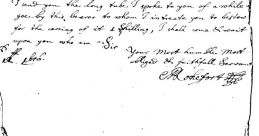 I send you the long tube. I spoke to you of a while
goe: by this bearer to whom I intreate you to bestow
for the caring of it 1 shilling, I shall come & wait
upon you who am Sir
Your most humble. Most
& faithfull Servant